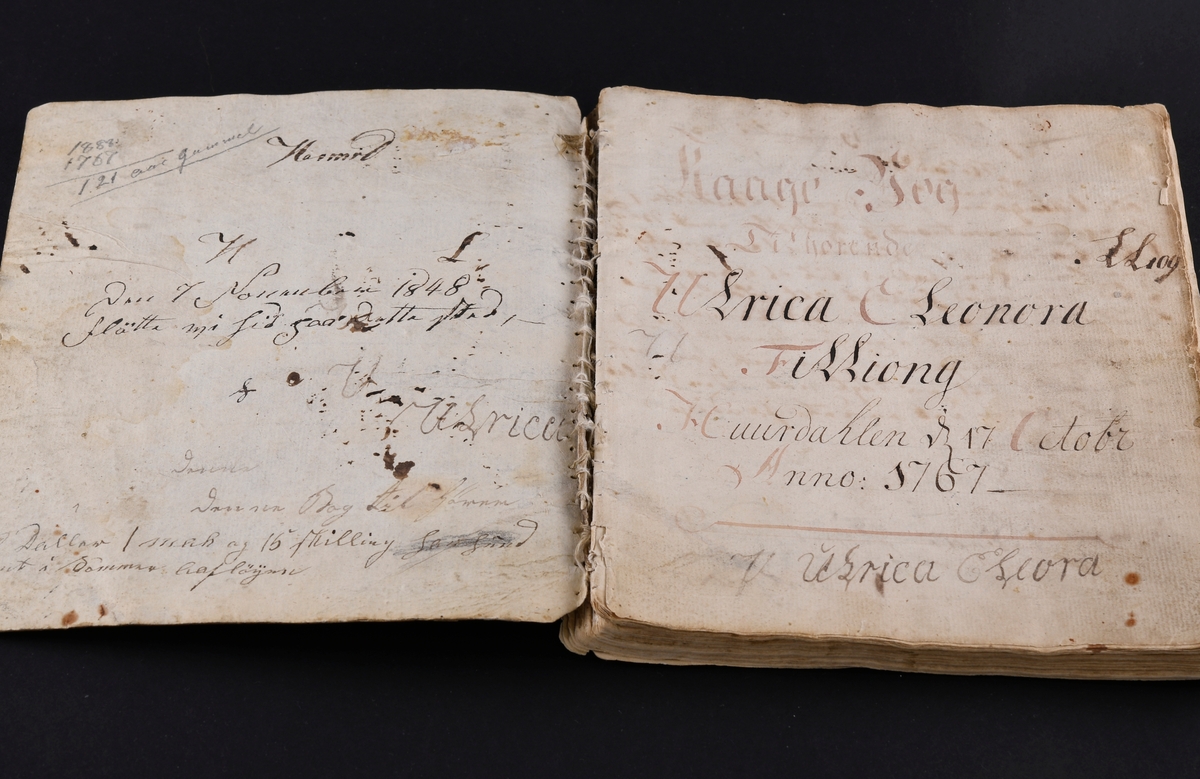 1888
1767
121 aar gammel
H L
Den 7 November 1848
flötte wi hid paa dette sted,
U
Ulrica
Denne
Denne Bog til hörer
Daller 1 mark og 16 skilling
i Sommer
Kaage Bog
Tilhørende
LL109
Ulrica Eleonora
U
Filliong
Huurdahlen d 17 Octobr
Anno: 1767
U Ulrica Eleora